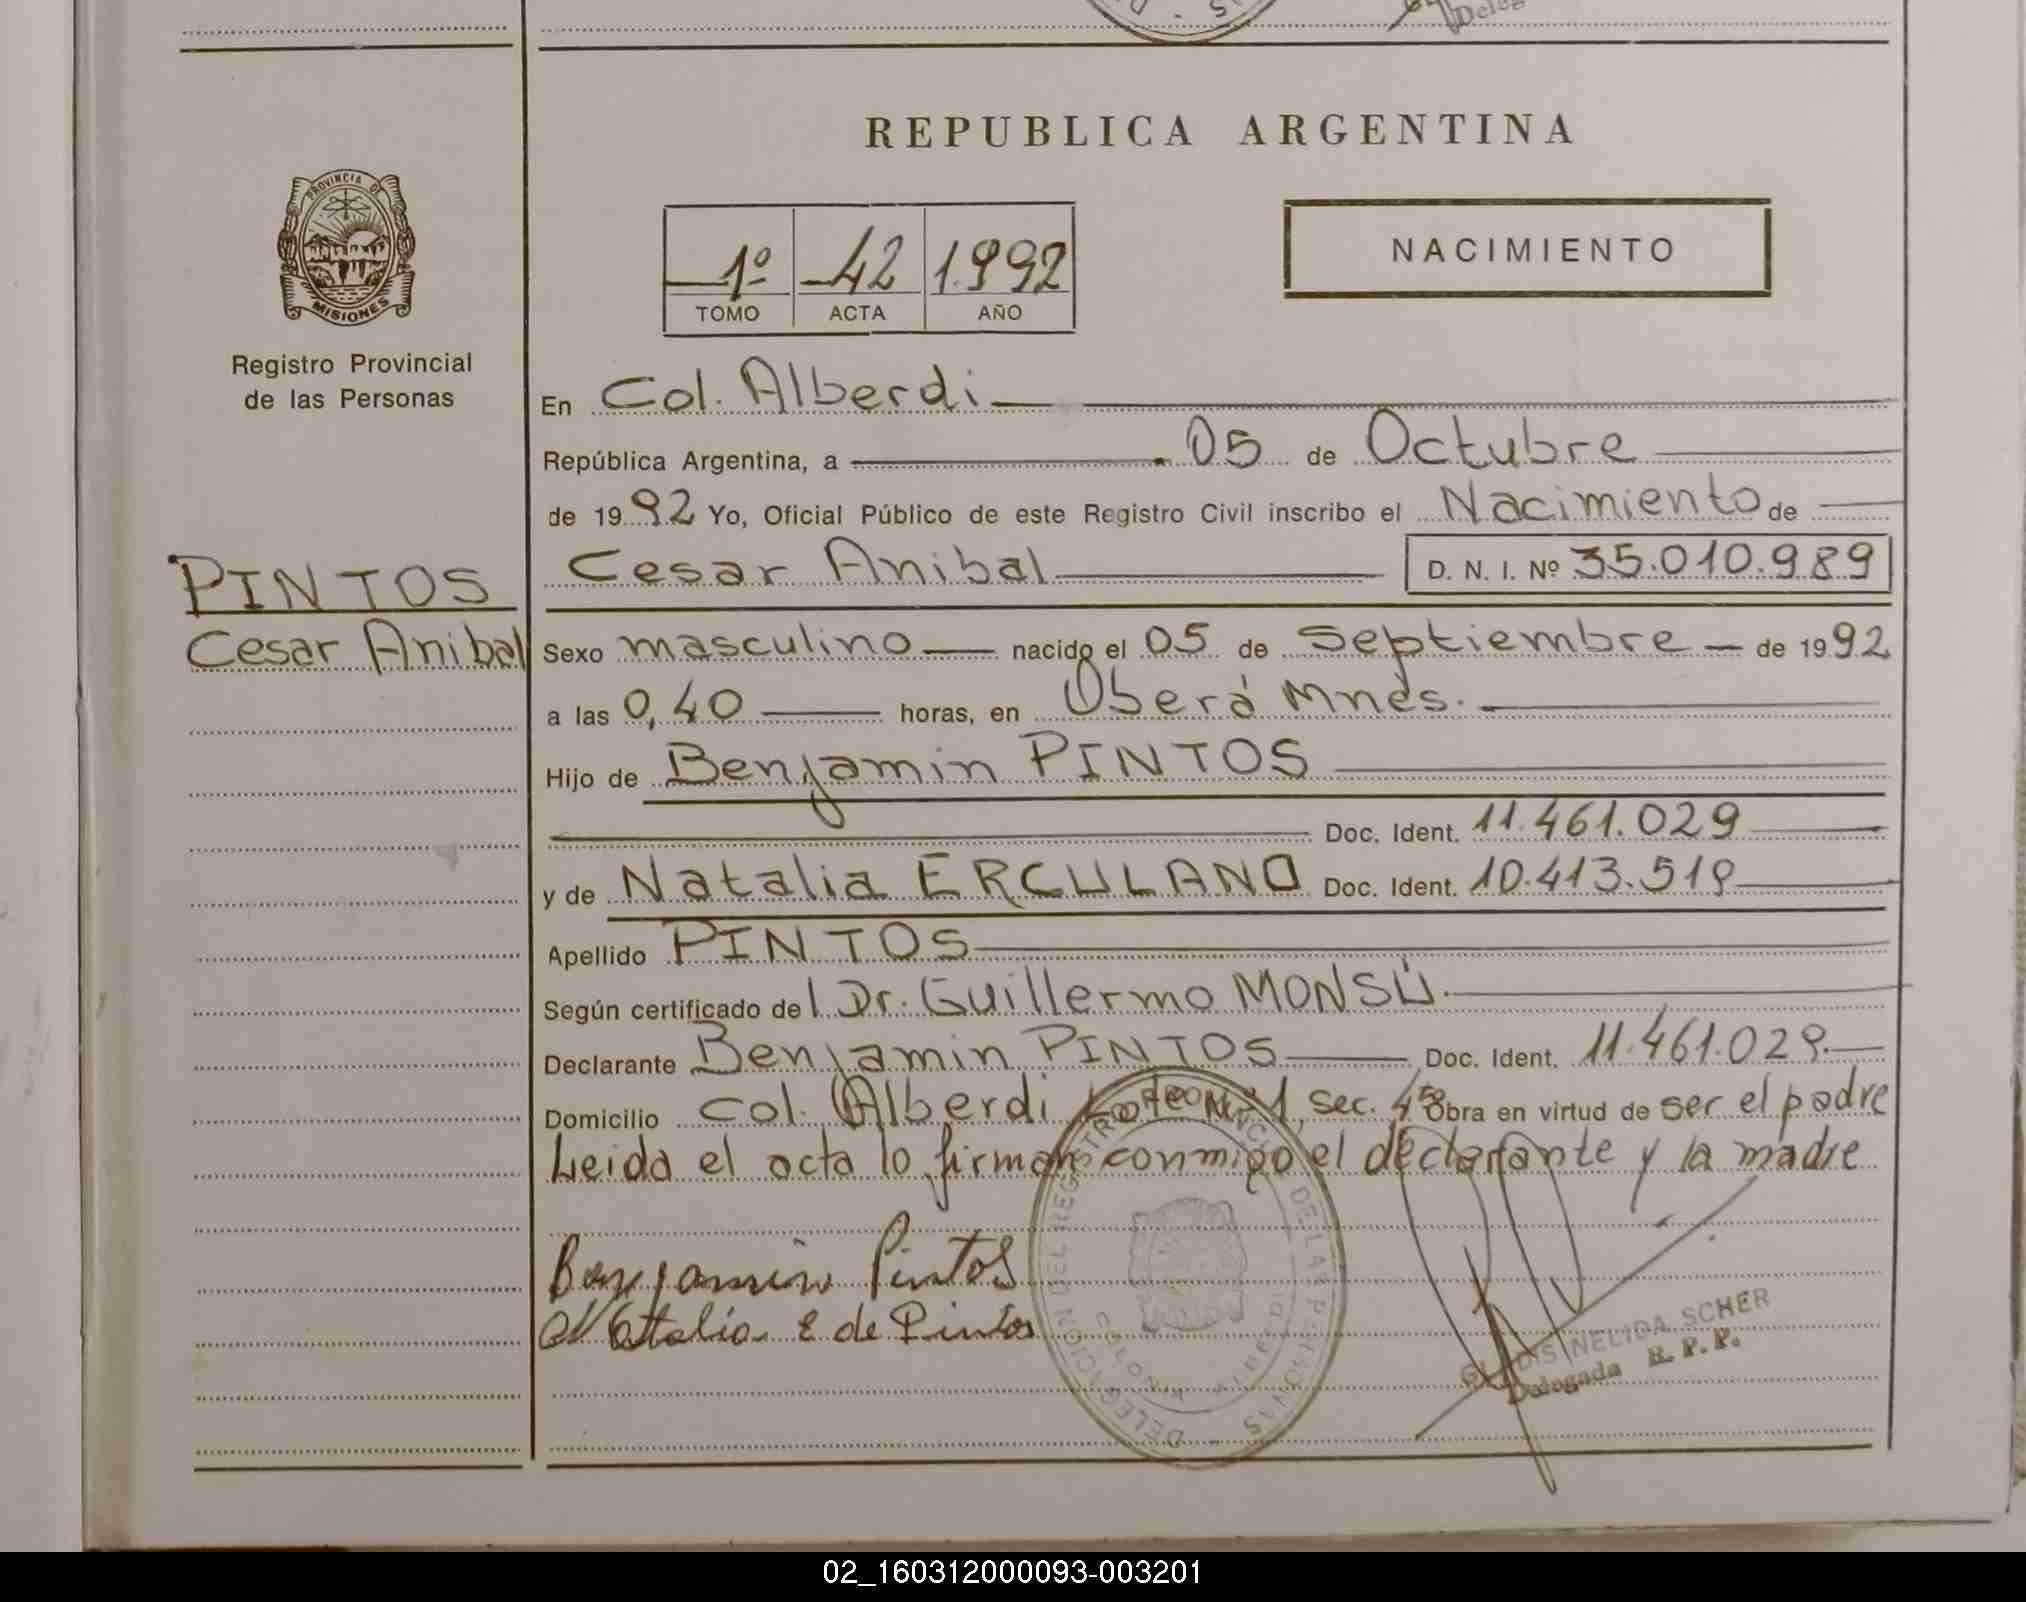 REPUBLICA ARGENTINA
PROVINCIA DE
MISIONES
Registro Provincial
de las Personas
1º 42 1.992
TOMO ACTA AÑO
NACIMIENTO
En Col. Alberdi
República Argentina, a 05 de Octubre
de 1992 Yo, Oficial Público de este Registro Civil inscribo el Nacimiento de
PINTOS
Cesar Anibal
Cesar Anibal D. N. I. Nº 35.010.989
Sexo masculino nacido el 05 de Septiembre de 1992
a las 0,40 horas, en Oberá Mnes.
Hijo de Benjamin PINTOS
Doc. Ident. 11.461.029
y de Natalia ERCULANO Doc. Ident. 10.413.519
Apellido PINTOS
Según certificado del Dr. Guillermo MONSÚ.
Declarante Benjamin PINTOS Doc. Ident. 11.461.029.
Domicilio Col. Alberdi Lote Nº 1, sec. 4º Obra en virtud de ser el padre
Leida el acta lo firman conmigo el declarante y la madre
Benjamin Pintos
Natalia E de Pintos
DELEGACION DEL REGISTRO PROVINCIAL DE LAS PERSONAS
COLONIA ALBERDI
NELIDA SCHER
Delegada R. P. P.
02_160312000093-003201